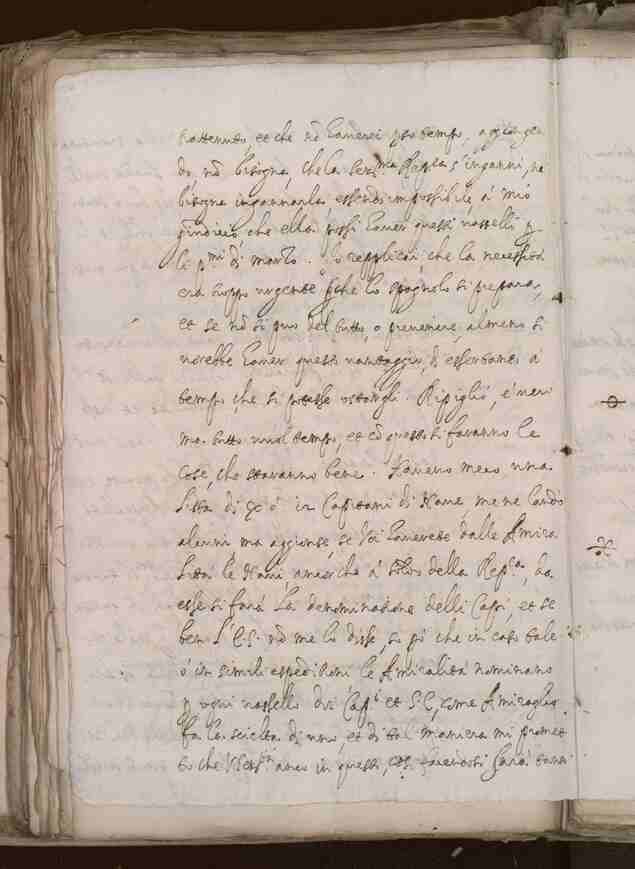 trattenuto, et che nō haverei p̄so tempo, aggiongen
do nō bisogna, che la Ser.ma Rep.ca s'inganni, ne
bisogna ingannarla essendo impossibile, à mio
giudicio che ella possi haver questi vasselli p
li p.mi di marzo. Io replicai, che la necessità
era troppo urgente pche lo spagnolo si prepara,
et se nō si può del tutto, o prevenire, almeno si
vorebbe haver questo vantaggio, di esser tanto à
tempo che si potesse ostargli. Ripigliò, è vero
ma tutto vuol tempo, et cō questo si faranno le
cose, che staranno bene. Havevo meco una
lista di ò in Capitani di Nave, me ne lodò
alcuni, ma aggiunse, se Voi haverete dalle Amira
lità le Navi, ancorche à soldo della Rep.ca, da
esse si farà la denominatione delli Cap.i, et se
ben S. E. nō me lo disse, so pò che in caso tale
ò in simili espeditioni le Amiralità nominano
p ogni vassello doi Cap.i et S. E. come Amiraglio
fà la scielta di uno, et di tal maniera mi promet
to che V. Ser.tà anco in questi, così facendosi sarà